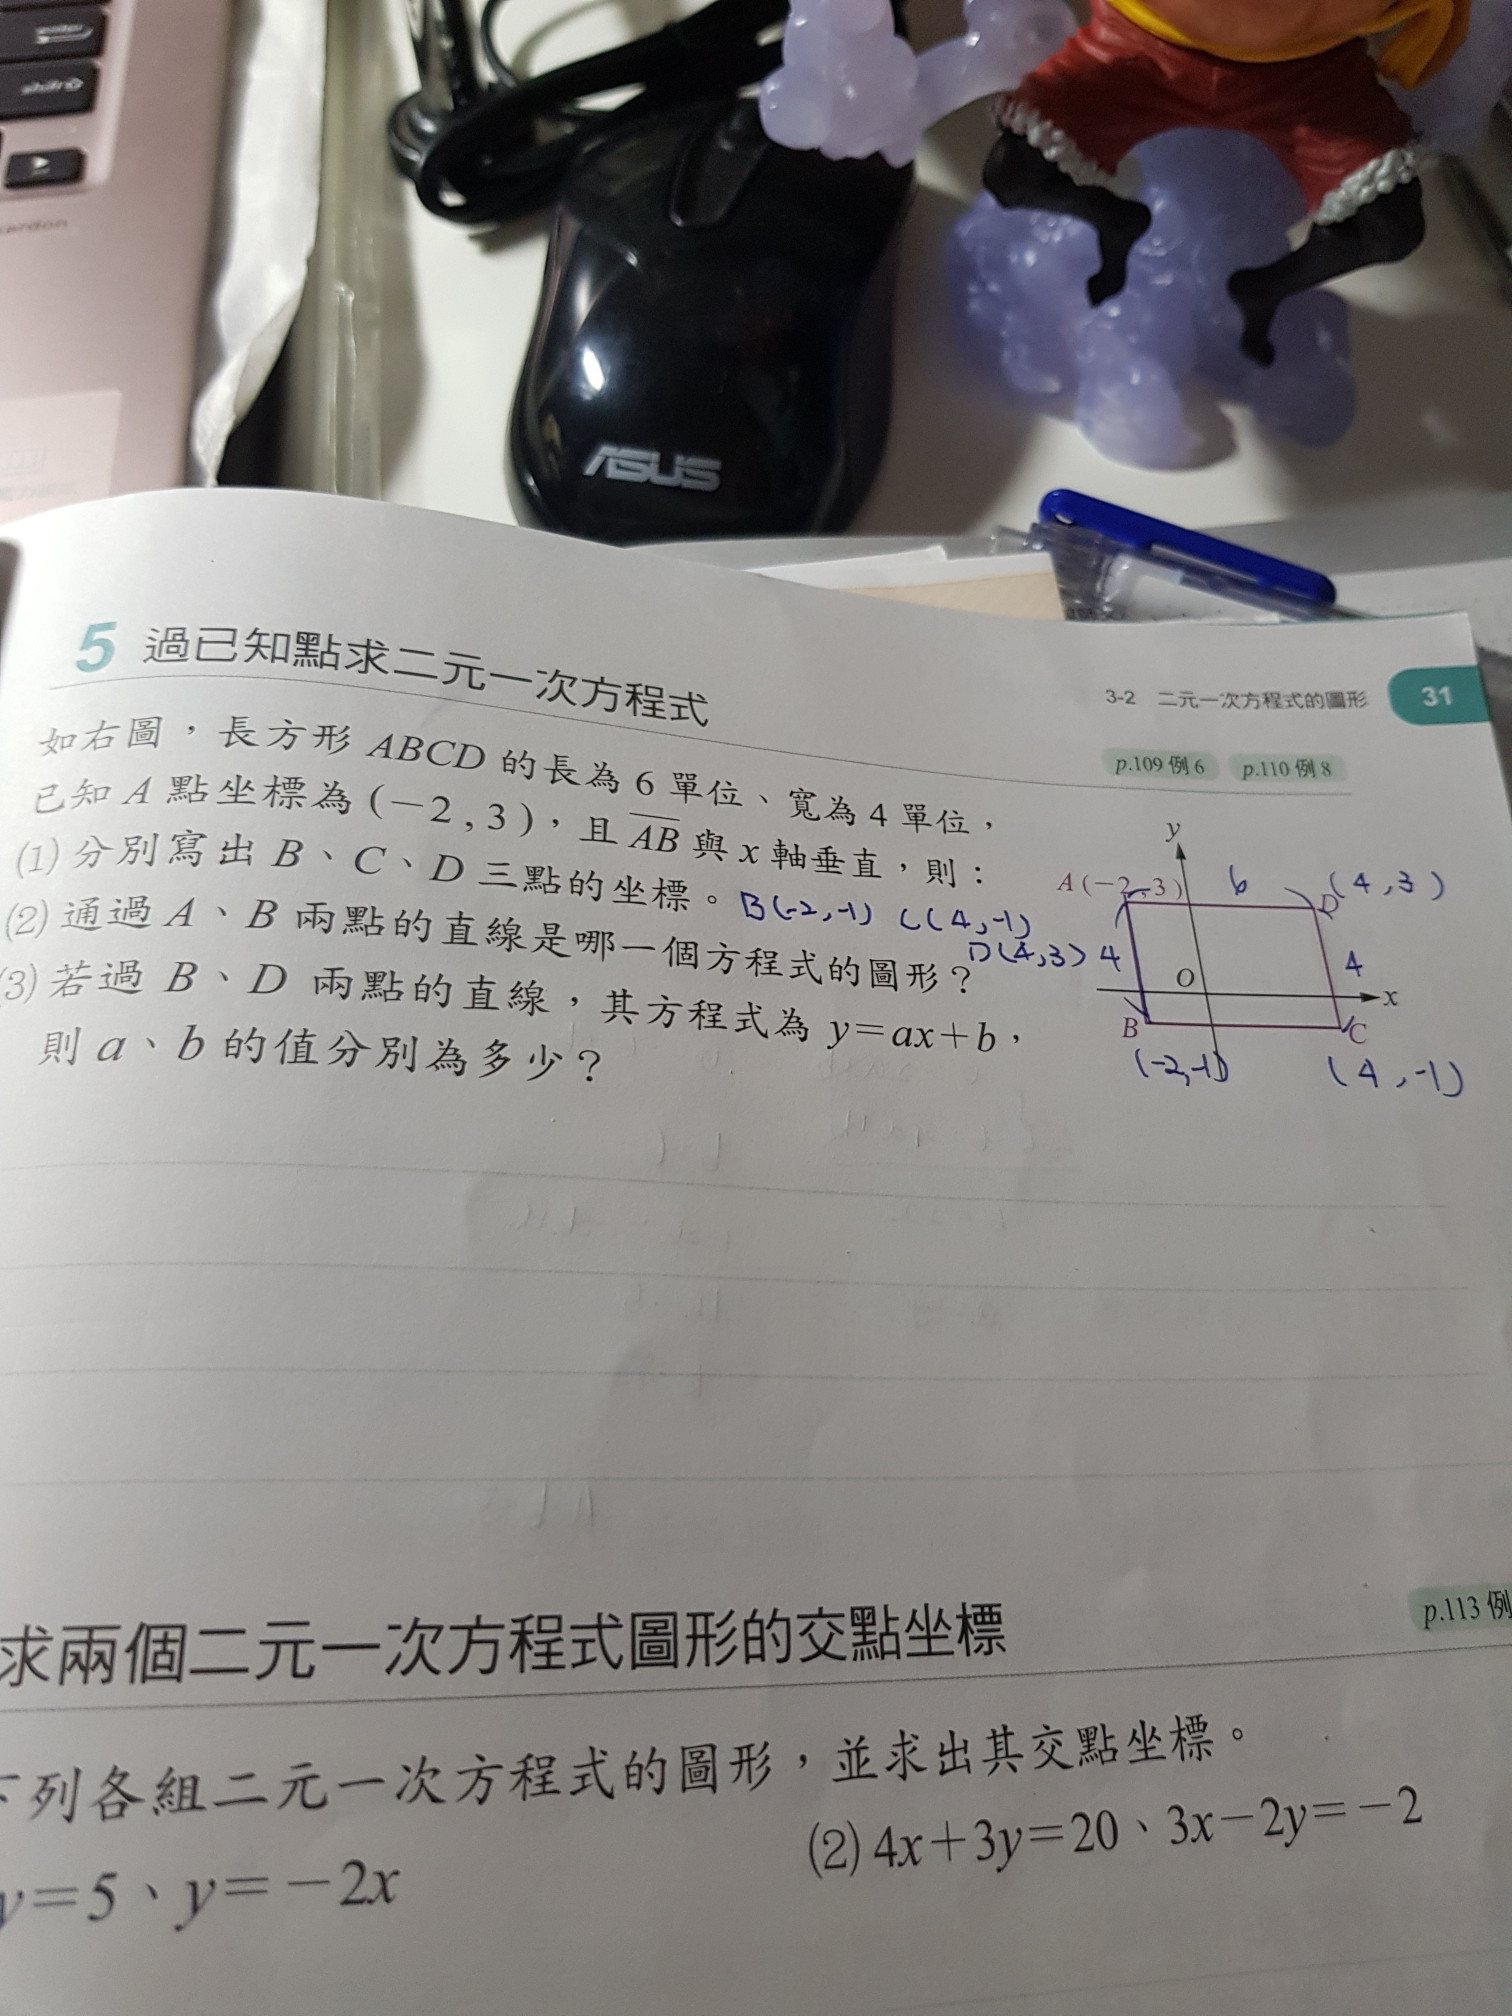 enter
shift
ASUS
3-2 二元一次方程式的圖形 31
5 過已知點求二元一次方程式
p.109 例 6 p.110 例 8
如右圖，長方形 ABCD 的長為 6 單位、寬為 4 單位，
已知 A 點坐標為 (−2 , 3)，且 AB 與 x 軸垂直，則：
(1) 分別寫出 B、C、D 三點的坐標。 B(-2,-1) C(4,-1)
D(4,3)
(2) 通過 A、B 兩點的直線是哪一個方程式的圖形？
(3) 若過 B、D 兩點的直線，其方程式為 y=ax+b，
則 a、b 的值分別為多少？
y
A(−2,3) 6 D (4,3)
4 4
O x
B C
(-2,-1) (4,-1)
求兩個二元一次方程式圖形的交點坐標
p.113 例
下列各組二元一次方程式的圖形，並求出其交點坐標。
y=5、y=−2x
(2) 4x+3y=20、3x−2y=−2